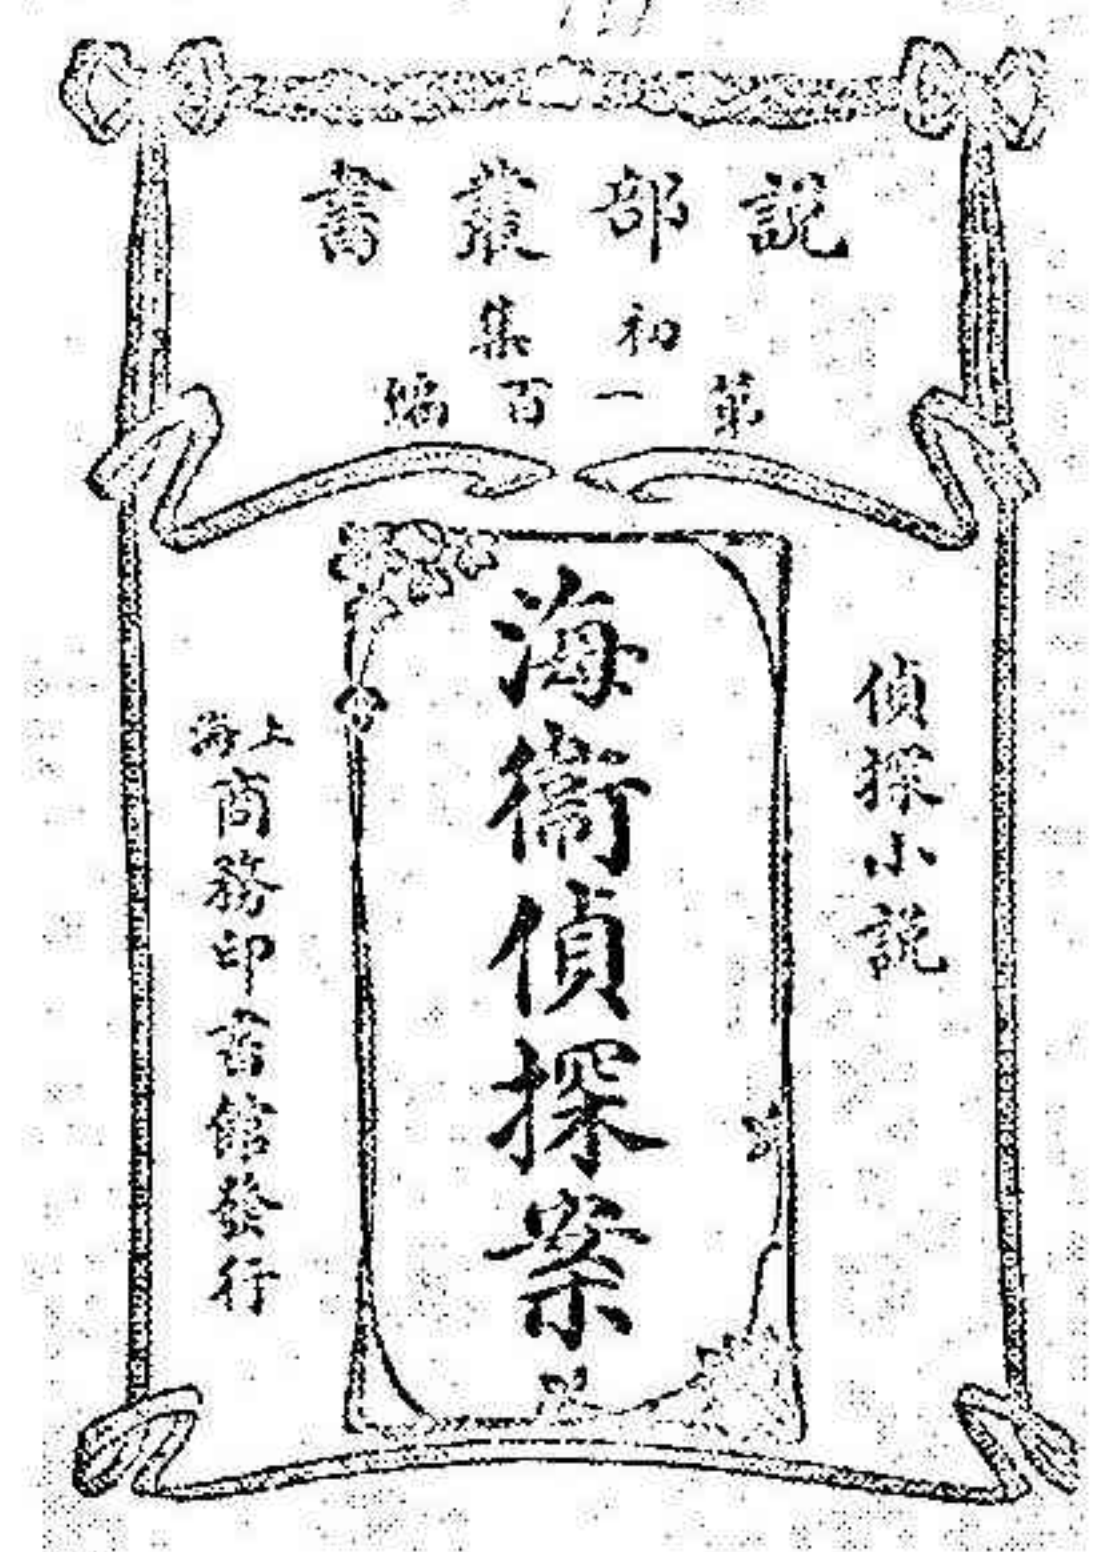 說部叢書
初集
第一百編
偵探小說
海衛偵探案
上海商務印書館發行